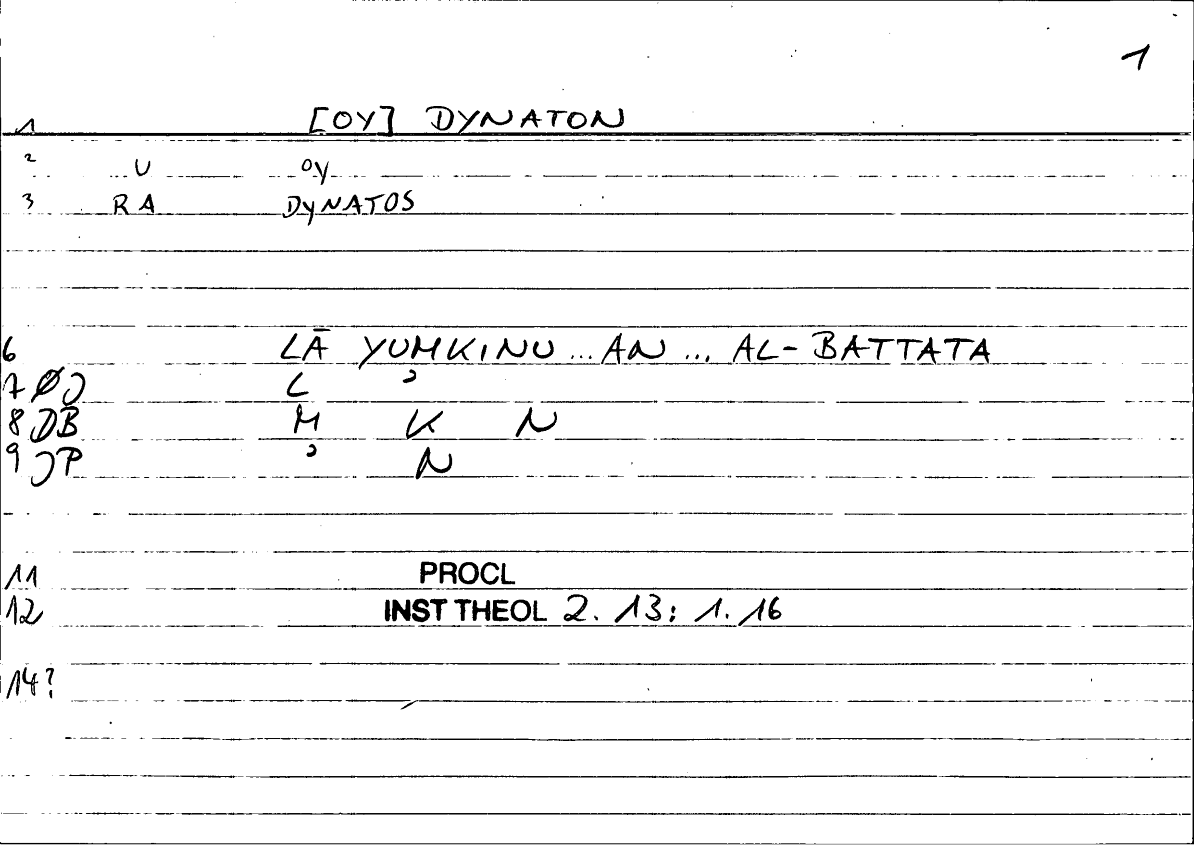 1
1 [OY] DYNATON
2 U OY
3 RA DYNATOS
6 LĀ YUMKINU ... AN ... AL-BATTATA
7 ØJ L ʾ
8 DB M K N
9 JP ʾ N
11 PROCL
12 INST THEOL 2. 13: 1. 16
14?